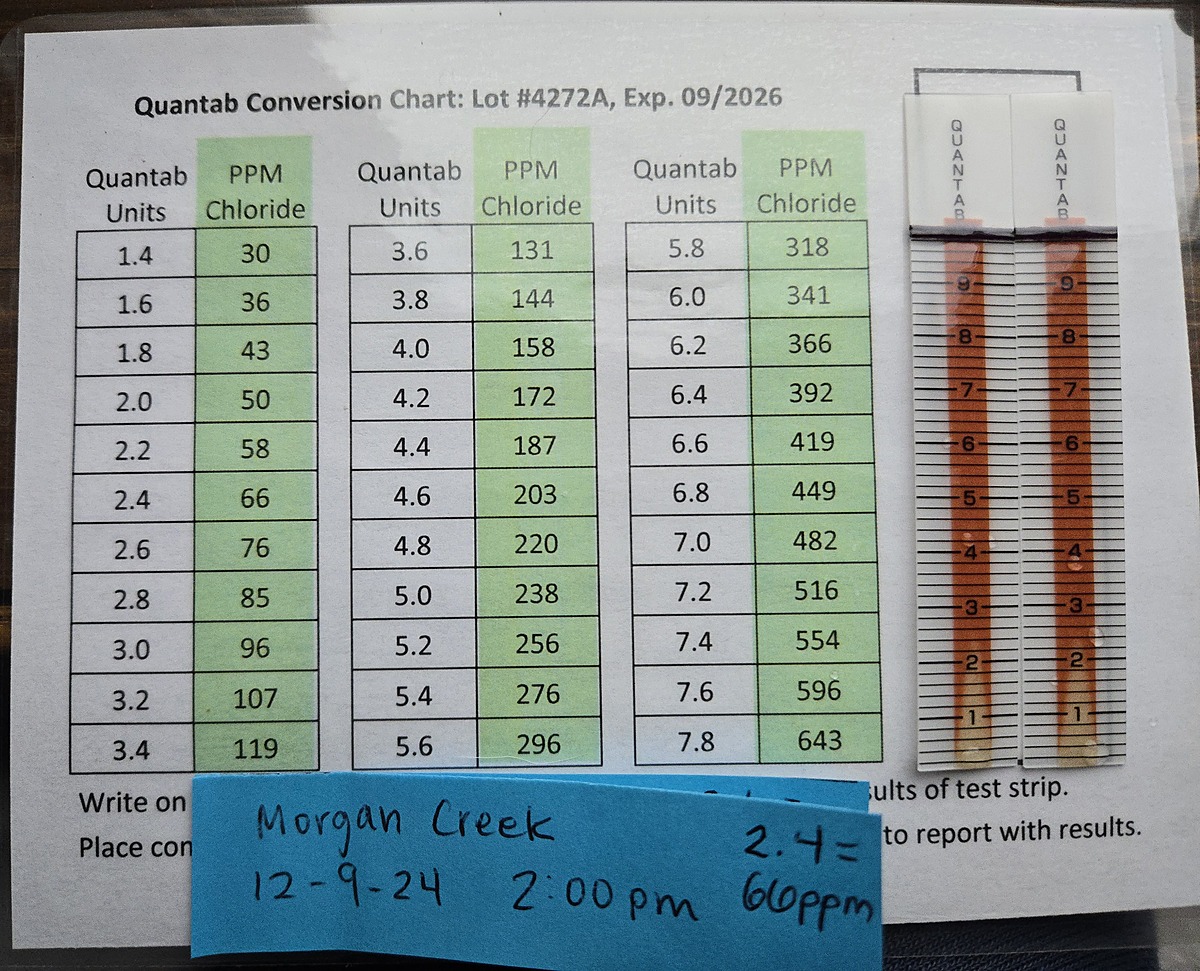 Quantab Conversion Chart: Lot #4272A, Exp. 09/2026
Quantab Units PPM Chloride Quantab Units PPM Chloride Quantab Units PPM Chloride
1.4 30 3.6 131 5.8 318
1.6 36 3.8 144 6.0 341
1.8 43 4.0 158 6.2 366
2.0 50 4.2 172 6.4 392
2.2 58 4.4 187 6.6 419
2.4 66 4.6 203 6.8 449
2.6 76 4.8 220 7.0 482
2.8 85 5.0 238 7.2 516
3.0 96 5.2 256 7.4 554
3.2 107 5.4 276 7.6 596
3.4 119 5.6 296 7.8 643
Write on
of test strip.
Place
to report with results.
Morgan Creek
12-9-24 2:00 pm
2.4 =
66ppm
QUANTAB
9
8
7
6
5
4
3
2
1
QUANTAB
9
8
7
6
5
4
3
2
1